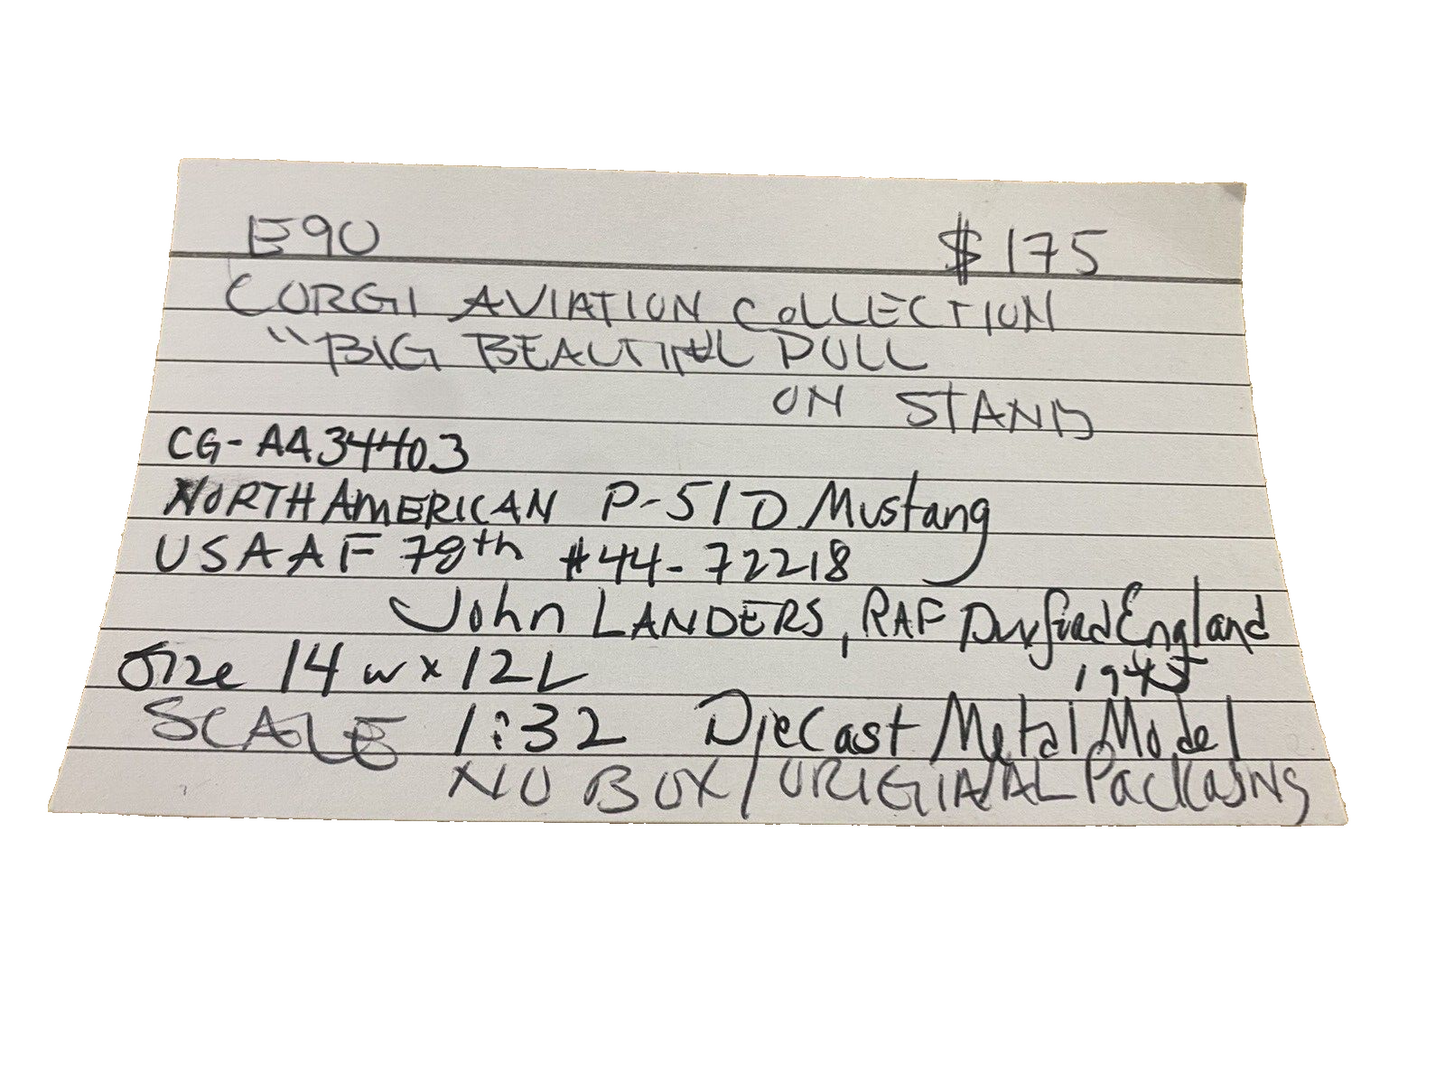 E90 $175
CORGI AVIATION COLLECTION
"BIG BEAUTIFUL DOLL
ON STAND
CG-AA34403
NORTH AMERICAN P-51D Mustang
USAAF 78th #44-72218
John LANDERS, RAF Duxford England
Size 14w x 12L 1945
SCALE 1:32 DieCast Metal Model
NO BOX/ORIGINAL Packaging